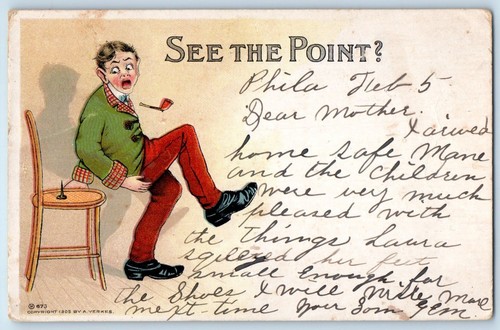 SEE THE POINT?
Phila Feb 5
Dear Mother.
I arived
home safe Mame
and the Children
were very much
pleased with
the Things, Laura
sqeezed her feet
small enough for
the Shoes I will write more
next-time your Son Gem.
© 673
COPYRIGHT 1905 BY A. VERKES